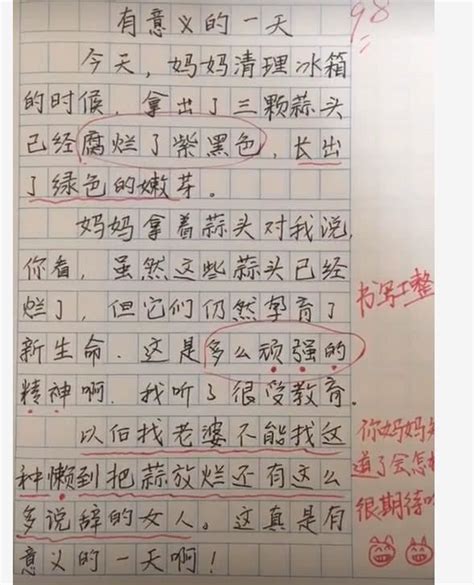 有意义的一天
98
今天,妈妈清理冰箱
的时候,拿出了三颗蒜头
已经腐烂了紫黑色,长出
了绿色的嫩芽。
妈妈拿着蒜头对我说,
你看,虽然这些蒜头已经
烂了,但它们仍然孕育了
新生命.这是多么顽强的
精神啊.我听了很受教育.
以后找老婆不能找这
种懒到把蒜放烂还有这么
多说辞的女人。这真是有
意义的一天啊!
书写工整
你妈妈知
道了会怎样
很期待